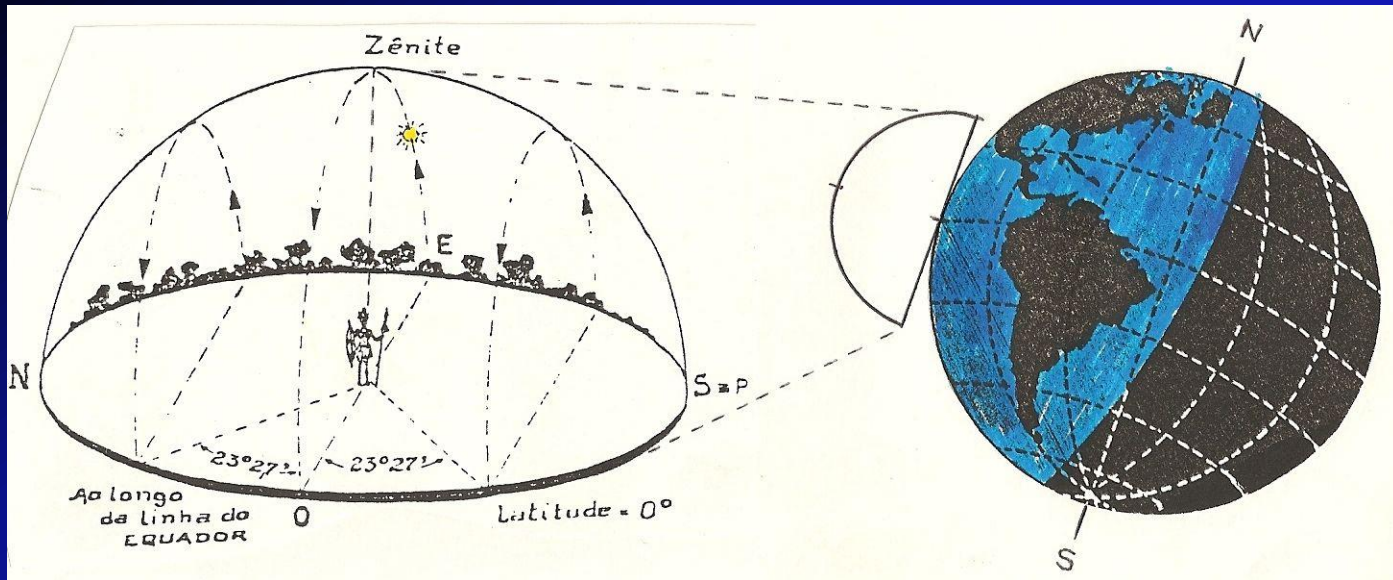 Zênite
E
N
S ≡ P
23°27'
23°27'
Ao longo
da linha do
EQUADOR
O
Latitude = 0°
N
S